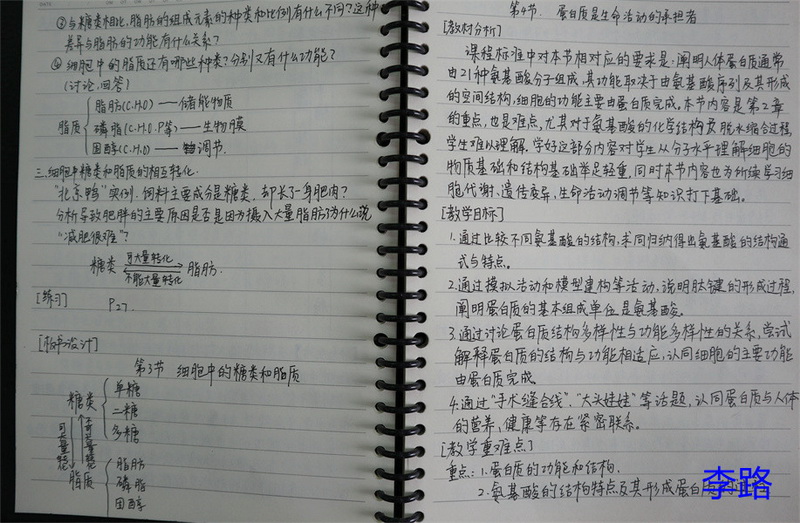 ②与糖类相比,脂肪的组成元素的种类和比例有什么不同?这种
差异与脂肪的功能有什么关系?
③细胞中的脂质还有哪些种类?分别又有什么功能?
(讨论,回答)
脂质
脂肪(C.H.O)——储能物质
磷脂(C.H.O.P等)——生物膜
固醇(C.H.O)——调节.
三.细胞中糖类和脂质的相互转化.
"北京鸭"实例.饲料主要成分是糖类,却长了一身肥肉?
分析导致肥胖的主要原因是否是因为摄入大量脂肪?为什么说
"减肥很难"?
糖类 可大量转化 脂肪.
不能大量转化
[练习] P27.
[板书设计]
第3节 细胞中的糖类和脂质
糖类
单糖
二糖
多糖
脂质
脂肪
磷脂
固醇
第4节. 蛋白质是生命活动的承担者
[教材分析]
课程标准中对本节相对应的要求是:阐明人体蛋白质通常
由21种氨基酸分子组成,其功能取决于由氨基酸序列及其形成
的空间结构,细胞的功能主要由蛋白质完成。本节内容是第2章
的重点,也是难点,尤其对于氨基酸的化学结构及脱水缩合过程,
学生难以理解.学好这部分内容对学生从分子水平理解细胞的
物质基础和结构基础举足轻重,同时本节内容也为后续学习细
胞代谢、遗传变异,生命活动调节等知识打下基础。
[教学目标]
1.通过比较不同氨基酸的结构,求同归纳得出氨基酸的结构通
式与特点。
2.通过模拟活动和模型建构等活动,说明肽键的形成过程,
阐明蛋白质的基本组成单位是氨基酸。
3.通过讨论蛋白质结构多样性与功能多样性的关系,尝试
解释蛋白质的结构与功能相适应,认同细胞的主要功能
由蛋白质完成。
4.通过"手术缝合线"、"大头娃娃"等话题,认同蛋白质与人体
的营养,健康等存在紧密联系。
[教学重难点]
重点:1.蛋白质的功能和结构.
2.氨基酸的结构特点及其形成蛋白质
李路